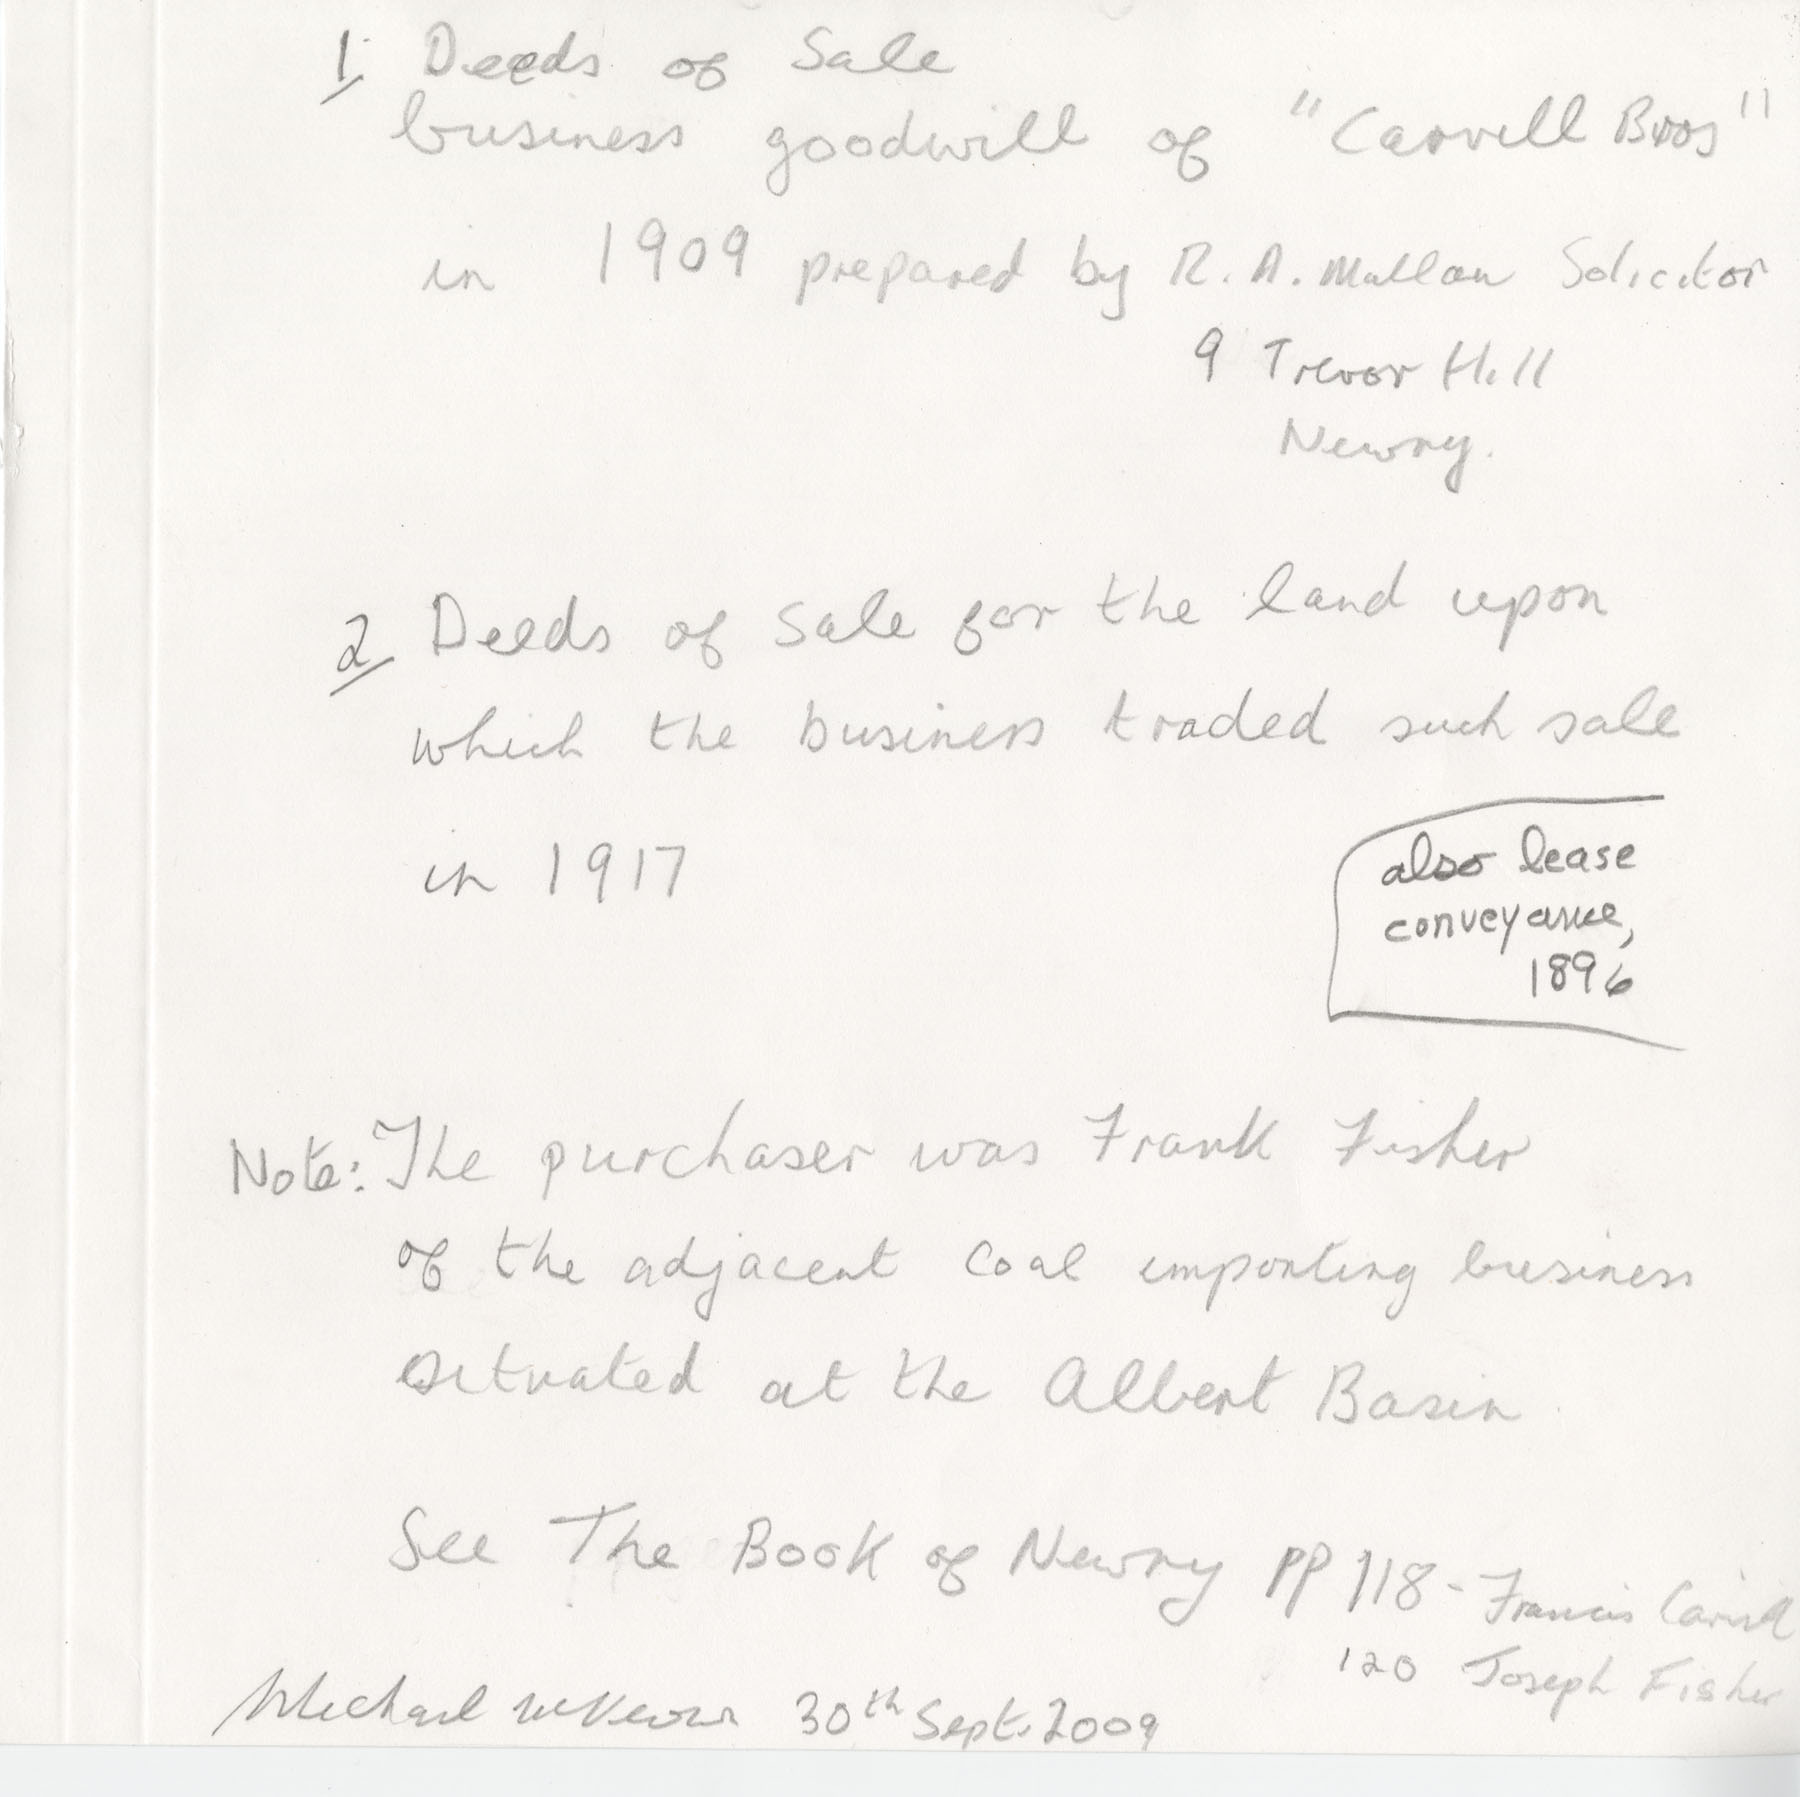 1. Deeds of Sale
business goodwill of "Carvill Bros"
in 1909 prepared by R. A. Mullan Solicitor
9 Trevor Hill
Newry.
2 Deeds of Sale for the land upon
which the business traded such sale
in 1917
also lease
conveyance,
1896
Note: The purchaser was Frank Fisher
of the adjacent coal importing business
situated at the Albert Basin
See The Book of Newry pp 118 - Francis Carvill
120 Joseph Fisher
Michael McKeown 30th Sept. 2009